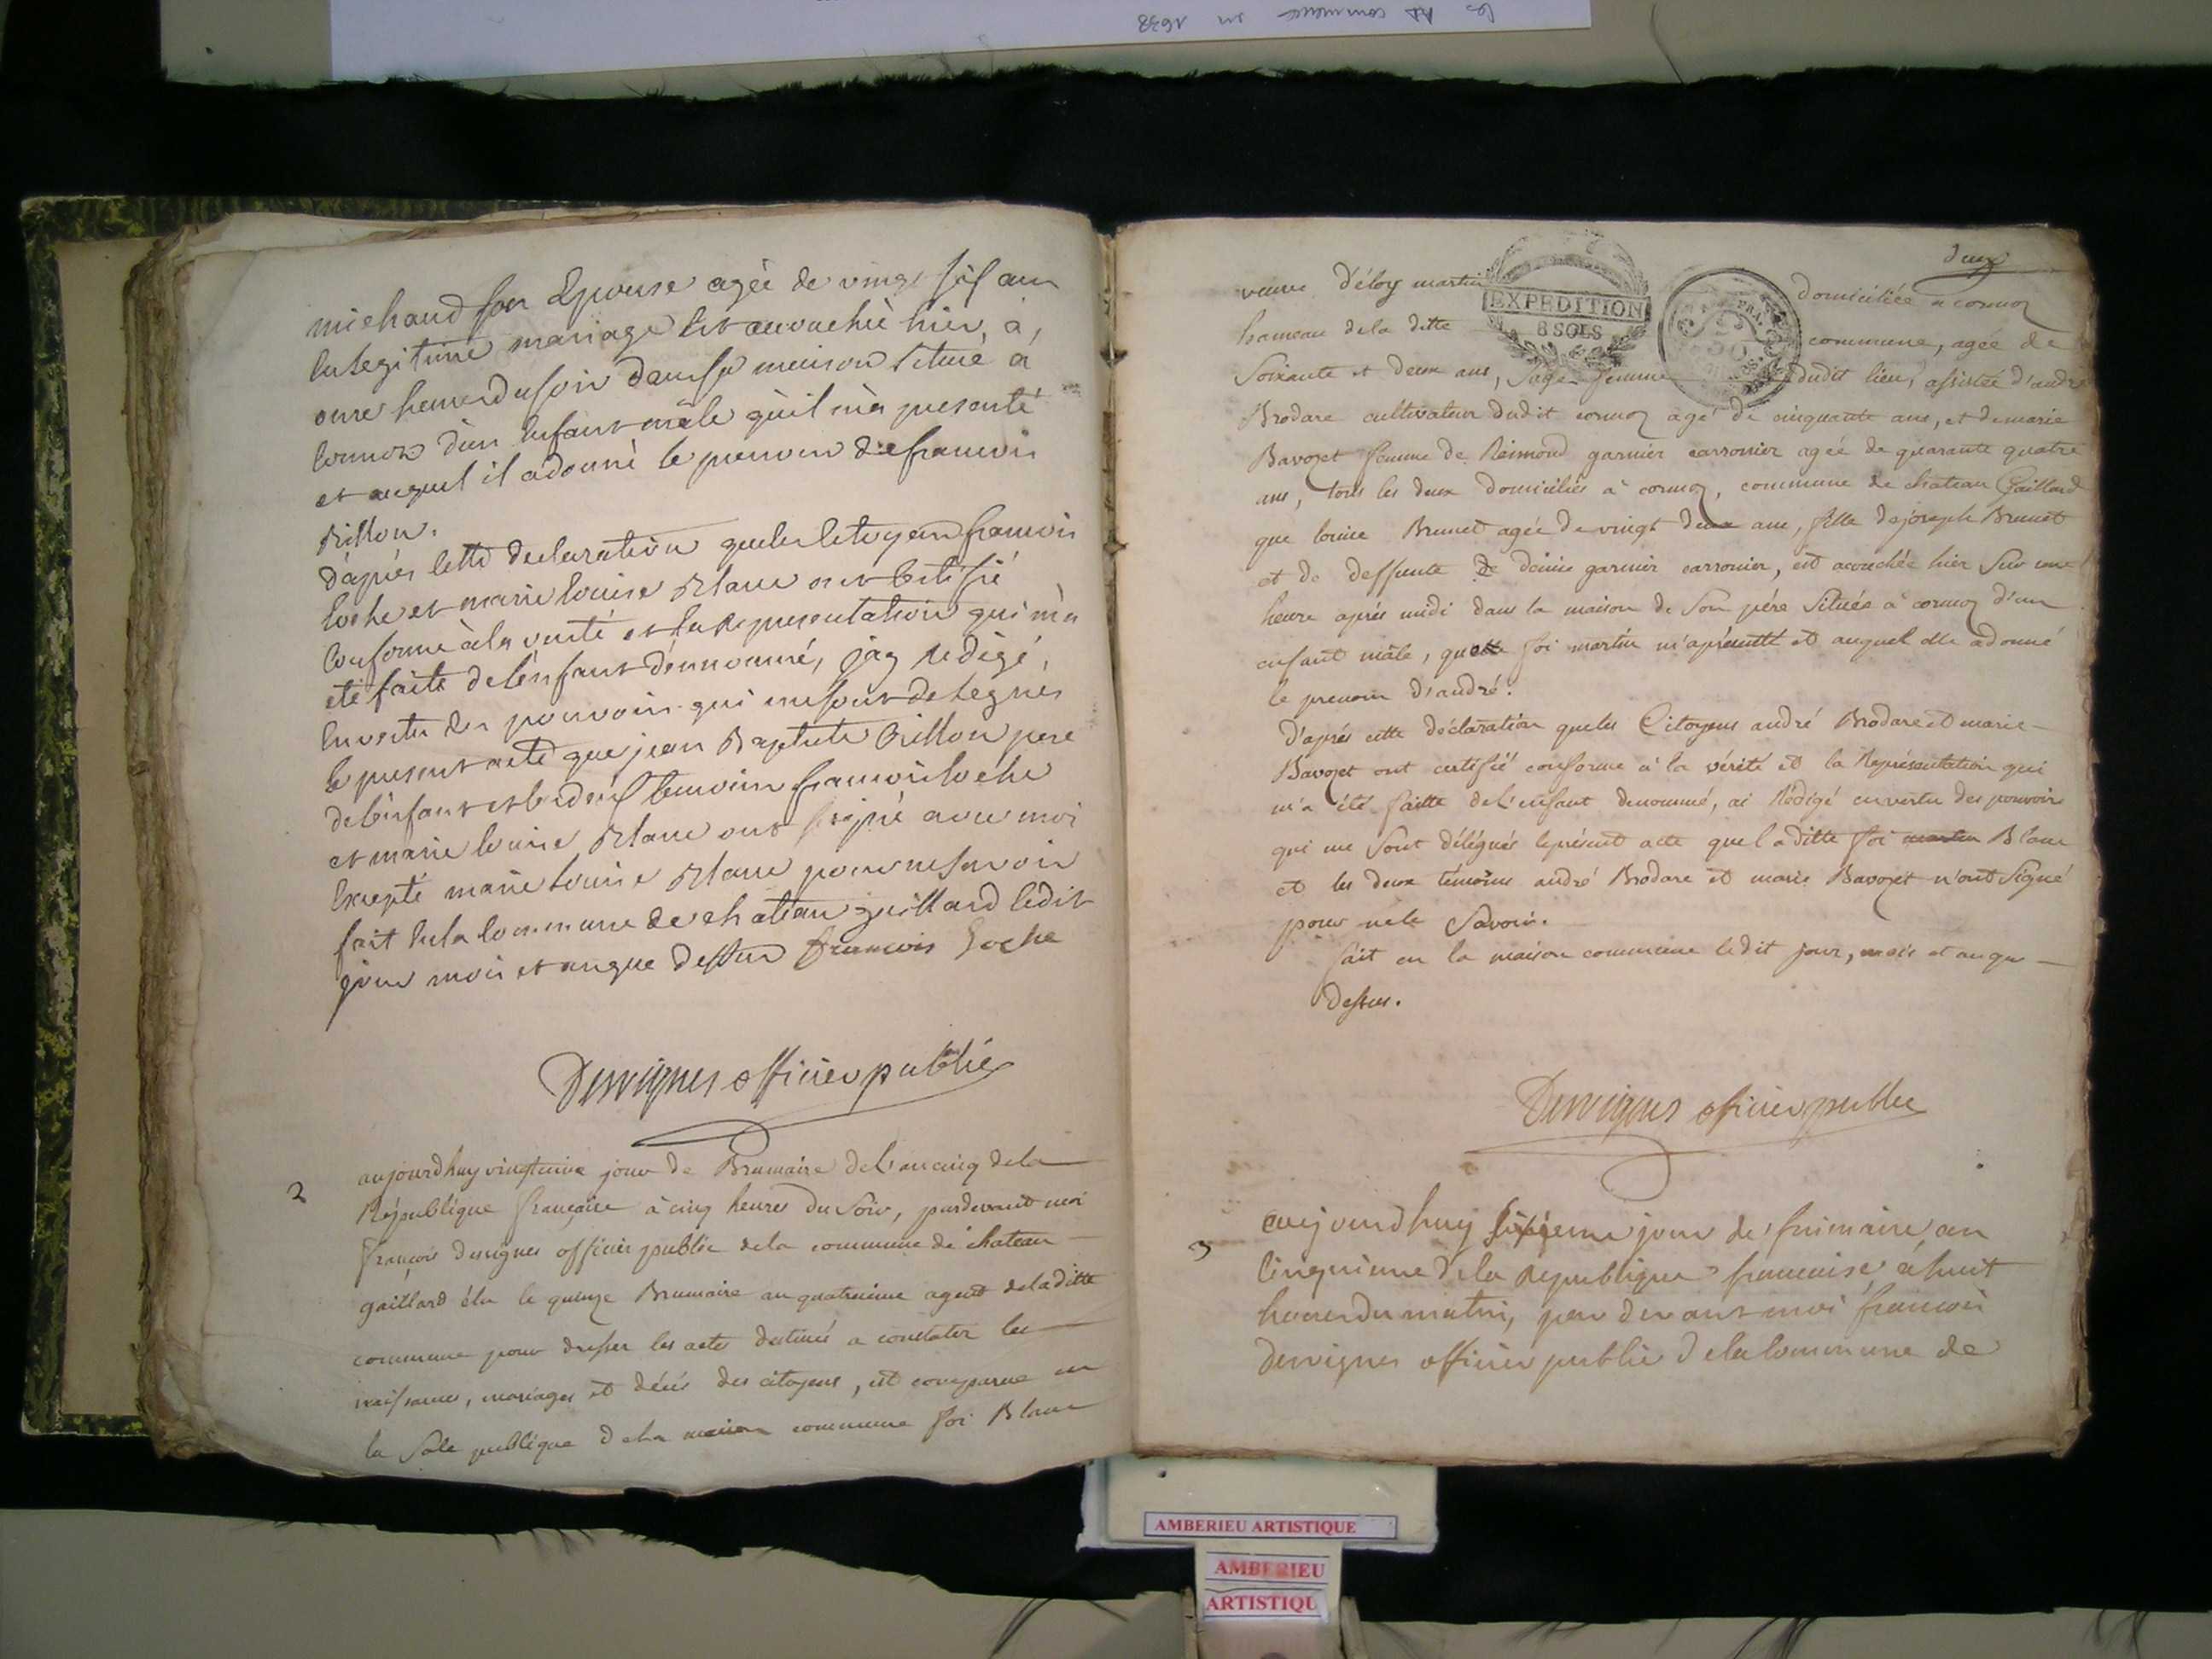 les commence en 1638
michaud son Epouse agée de vingt sèf ans
En Legitime mariage Est accouchée hier, à,
onze heures du soir dans sa maison située à
Cormoz d'un Enfant mâle qu'il m'a presenté
et auquel il a donné le prenom de francois
Billon.
D'après Cette declaration que les Citoyens francois
Loche et marie Louise Blanc ont Certifié
Conforme à la verité et la Representation qui m'a
eté faite de l'énfant dénnommé, j'ay Redigé,
En vertu des pouvoirs qui me sont delegués
le present acte que jean Baptiste Billon pere
de l'énfant et les deux temoins francois loche
et marie Louise Blanc ont signé avec moi
Excepté marie Louise Blanc pour ne savoir
fait En la Commune de chateau gaillard ledit
jour mois et an que dessus francois Loche
Desvignes officier public
2
aujourdhuy vingtieme jour de Brumaire de l'an cinq de la
République française à cinq heures du Soir, pardevant moi
françois desvignes officier public de la commune de chateau
gaillard élu le quinze Brumaire an quatrieme agent de la ditte
commune pour dresser les actes destinés a constater les
naissances, mariages et décés des citoyens, est comparue en
la Sale publique de la maison commune foi Blanc
deux
veuve d'éloy martin domiciliée a cormoz
EXPEDITION
8 SOLS
hameau de la ditte commune, agée de
Soixante et deux ans, Sage femme dudit lieu, assistée d'andré
Brodare cultivateur dudit cormoz agé de cinquante ans, et de marie
Bavozet femme de Reimond garnier carronier agée de quarante quatre
ans, tous les deux domiciliés à cormoz, commune de chateau Gaillard
que louise Brunet agée de vingt deux ans, fille de joseph Brunet
et de deffunte de denise garnier carronier, est acouchée hier Sur une
heure après midi dans la maison de Son pére Située à cormoz d'un
enfant mâle, que foi martin m'a présenté et auquel elle a donné
le prenom d'andré.
D'après cette déclaration que les Citoyens andré Brodare et marie
Bavozet ont certifié conforme à la vérité et la Représentation qui
m'a été faitte de l'enfant denommé, ai Rédigé en vertu des pouvoirs
qui me Sont délégués le présent acte que la ditte foi martin Blanc
et les deux témoins andré Brodare et marie Bavozet n'ont Signé
pour ne le Savoir.
fait en la maison commune ledit jour, mois et an que
dessus.
Desvignes officier public
3
aujourdhuy Sixieme jour de frimaire an
Cinquieme de la Republique francaise à huit
heures du matin, par devant moi francois
desvignes officier public de la Commune de
AMBERIEU ARTISTIQUE
AMBERIEU
ARTISTIQU